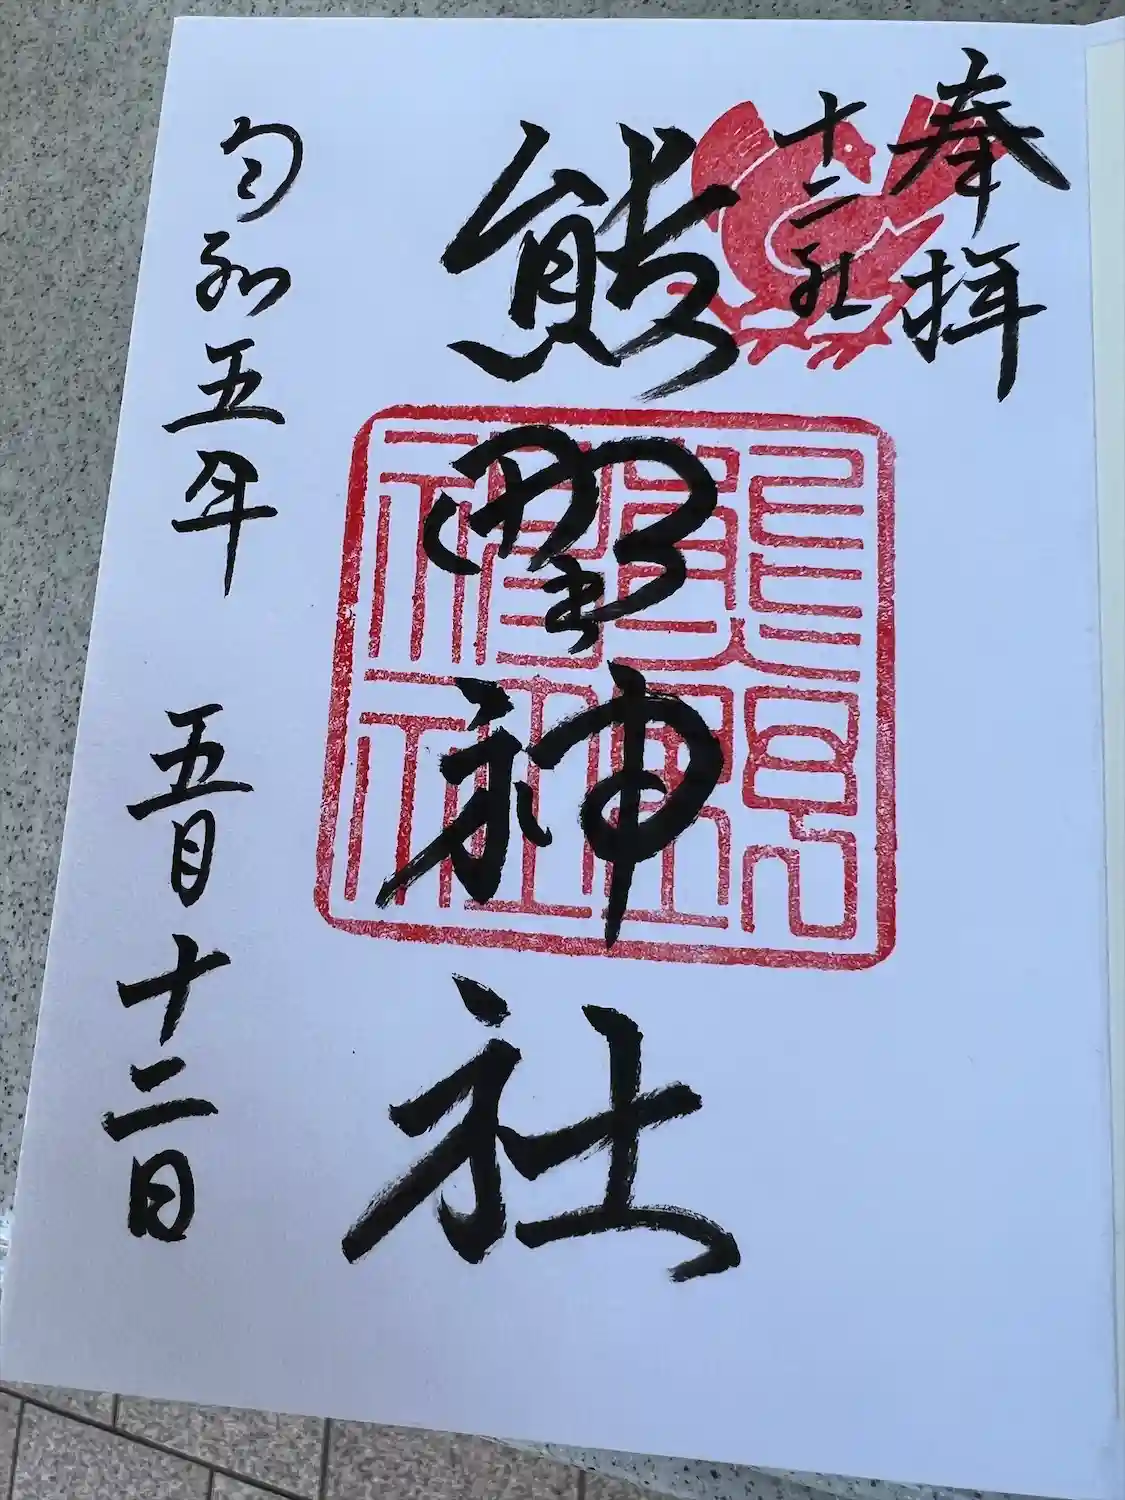 奉拝
十二社
熊野神社
熊野
神社
令和五年 五月十二日